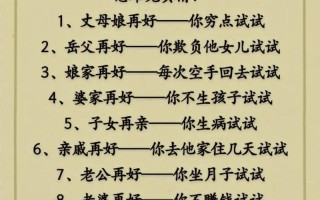 1、丈母娘再好——你穷点试试
2、岳父再好——你欺负他女儿试试
3、娘家再好——每次空手回去试试
4、婆家再好——你不生孩子试试
5、子女再亲——你生病试试
6、亲戚再好——你去他家住几天试试
7、老公再好——你坐月子试试
8、老婆再好——你不赚钱试试